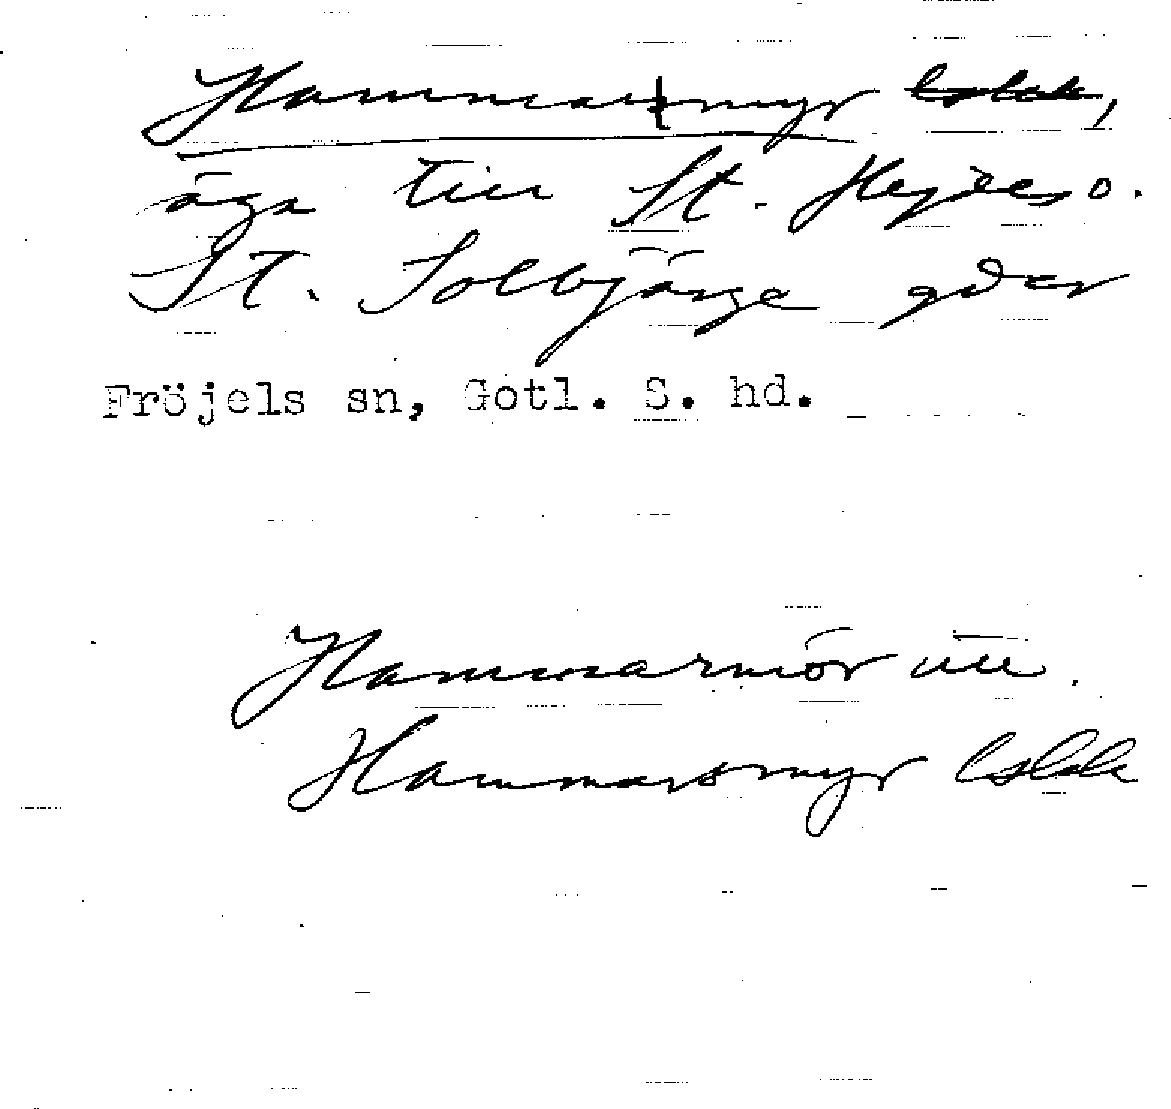 Hammarsmyr lslak,
äga till St. Hejdes o.
St. Solbjärge gdar
Fröjels sn, Gotl. S. hd.
Hammarmör utt.
Hammarsmyr lslak